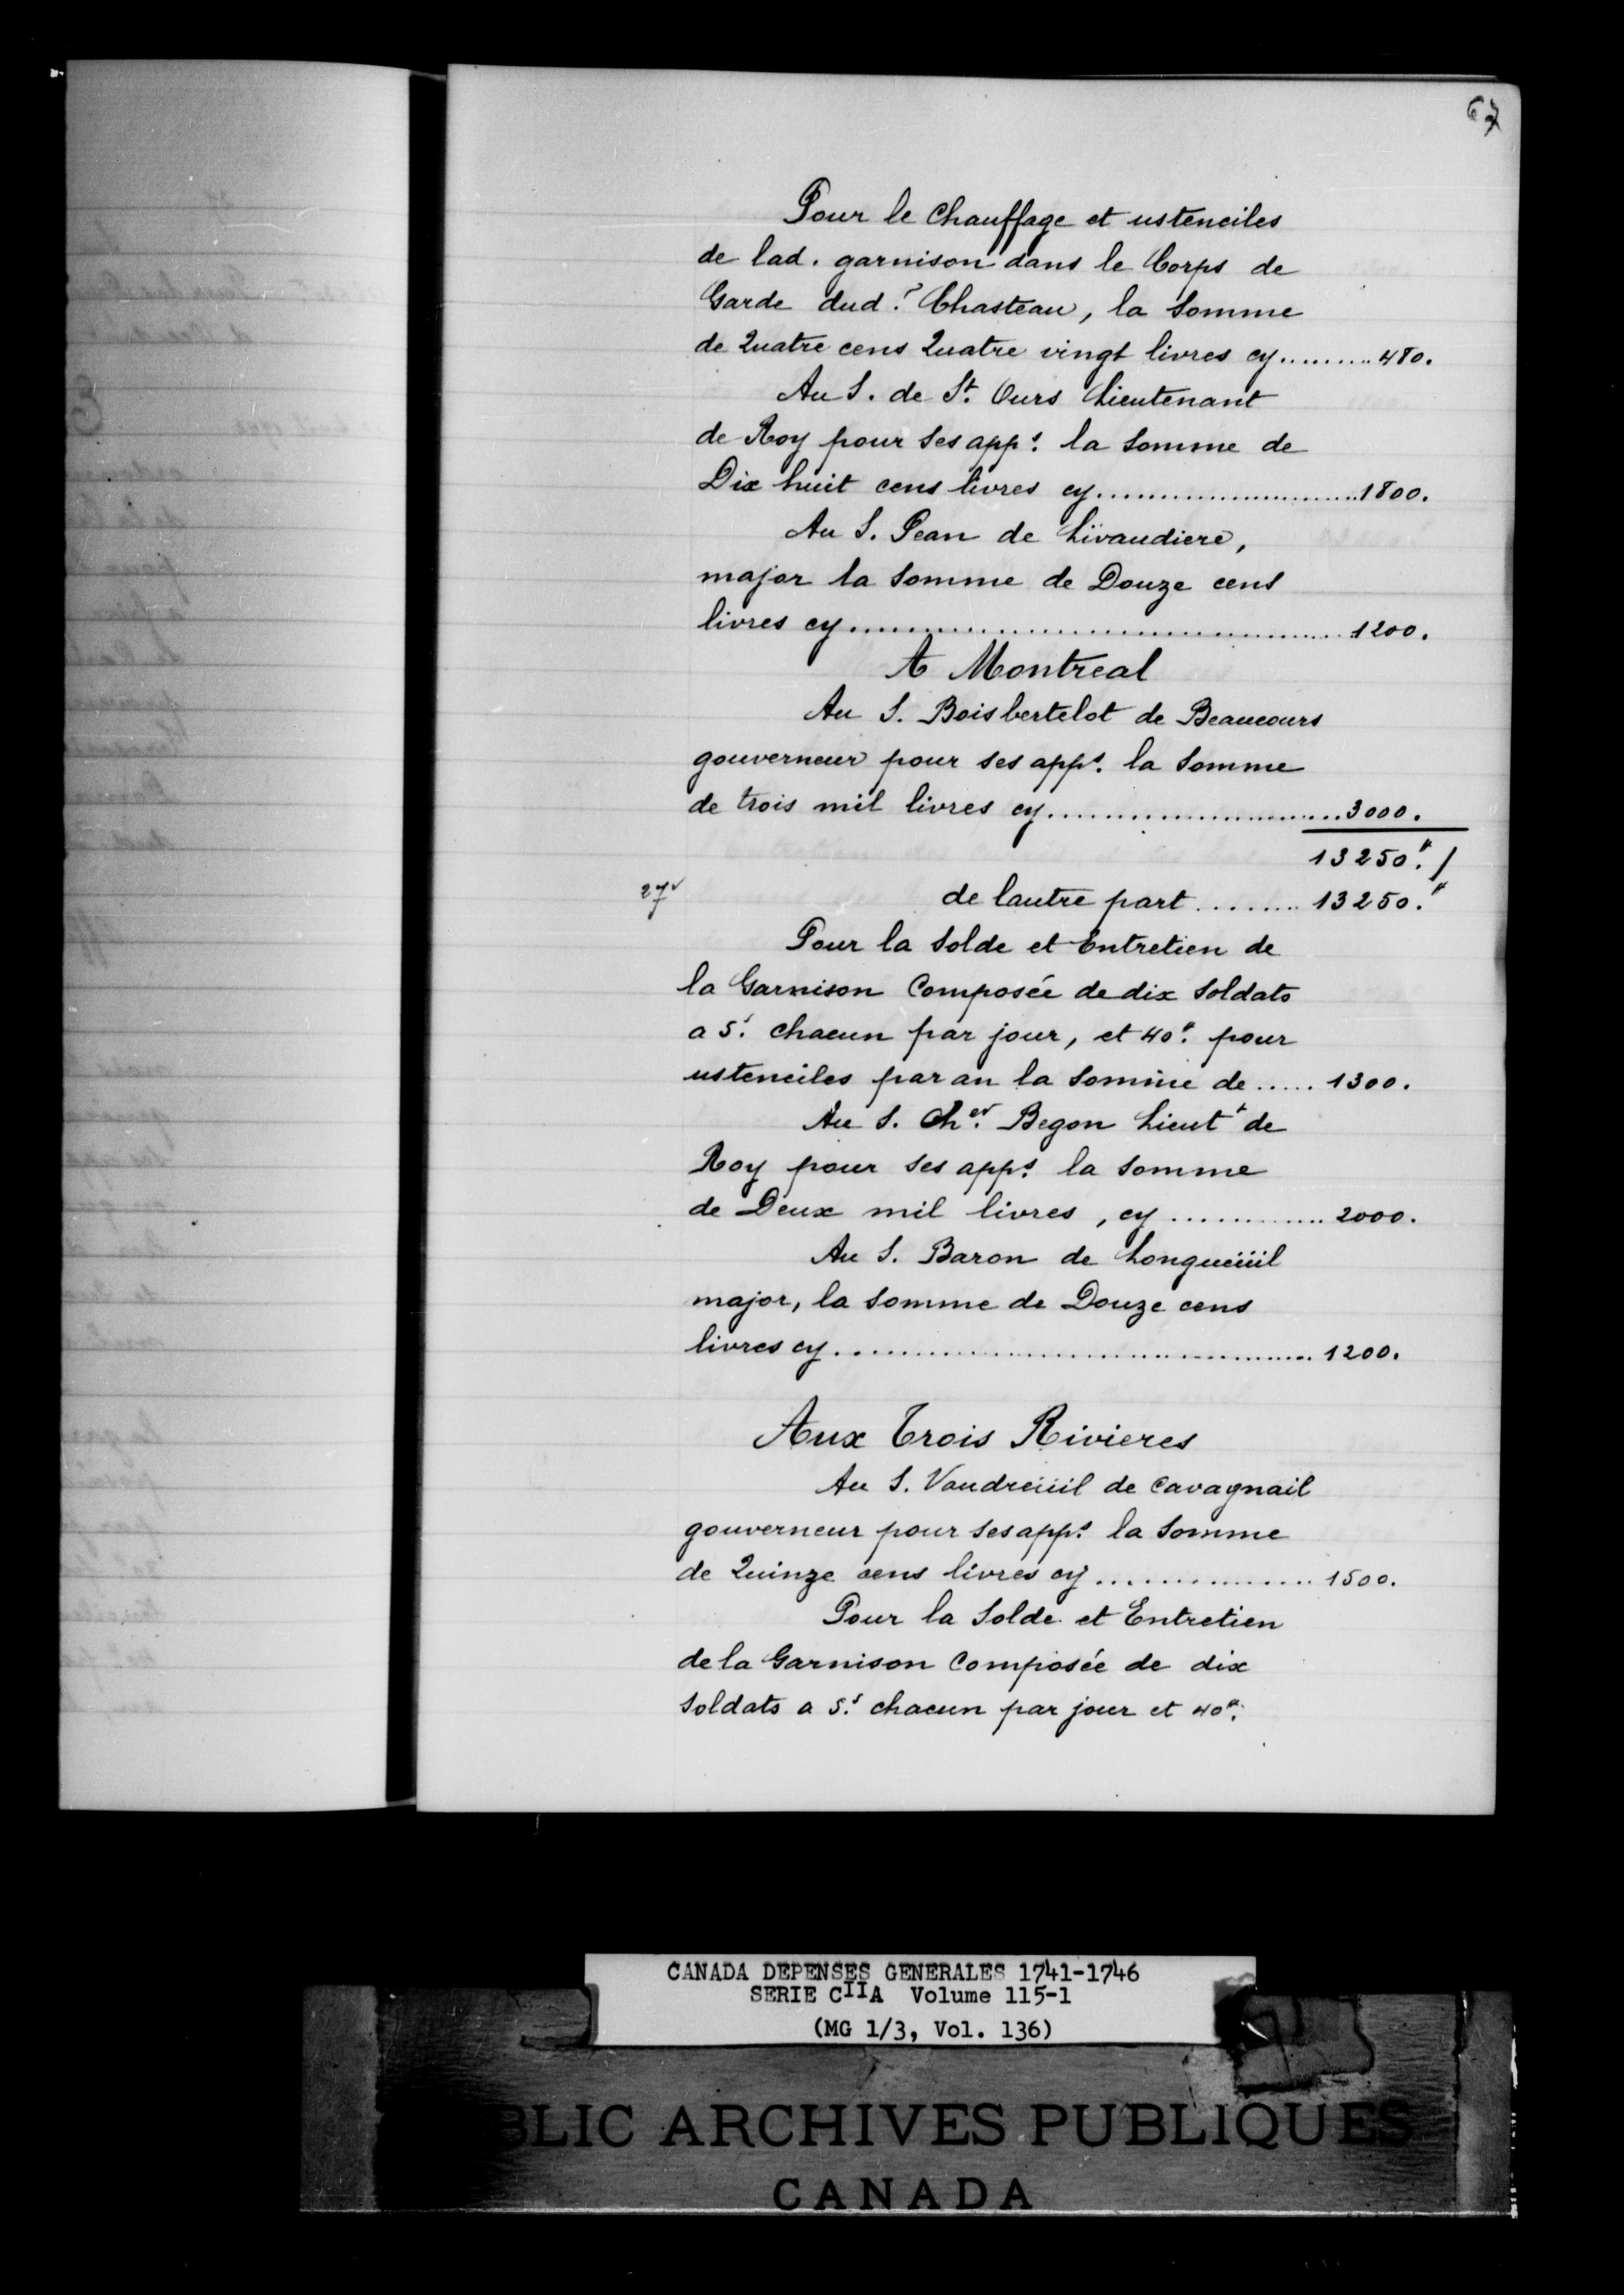 67
Pour le Chauffage et usteneiles
de lad. garnison dans le Corps de
Garde dud.t Chasteau, la Somme
de Quatre cens Quatre vingt livres cy.........480.
Au S. de St. Ours Lieutenant
de Roy pour ses apps. la Somme de
Dix huit cens livres cy........................1800.
Au S. Pean de Livaudiere,
major la Somme de Douze cens
livres cy........................................1200.
A Montreal
Au S. Boisbertelot de Beaucours
gouverneur pour ses apps. la Somme
de trois mil livres cy........................3000.
13250.# /
27v de lautre part ........ 13250.#
Pour la Solde et Entretien de
la Garnison Composée de dix Soldats
a 5s. chacun par jour, et 40#. pour
usteneiles par an la Somme de ..... 1300.
Au S. Cher. Begon Lieut t de
Roy pour ses apps. la Somme
de Deux mil livres, cy ............. 2000.
Au S. Baron de Longueüiil
major, la Somme de Douze cens
livres cy........................................ 1200.
Aux Trois Rivieres
Au S. Vaudreüiil de Cavagnail
gouverneur pour ses apps. la Somme
de Quinze cens livres cy ................ 1500.
Pour la Solde et Entretien
de la Garnison Composée de dix
Soldats a 5s. chacun par jour et 40#.
CANADA DEPENSES GENERALES 1741-1746
SERIE CIIA Volume 115-1
(MG 1/3, Vol. 136)
BLIC ARCHIVES PUBLIQUES
CANADA